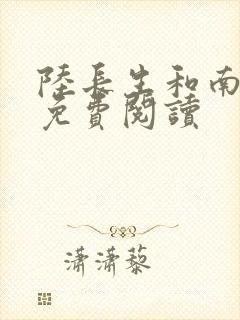 陸長生和南
免費閱讀
瀟瀟藜